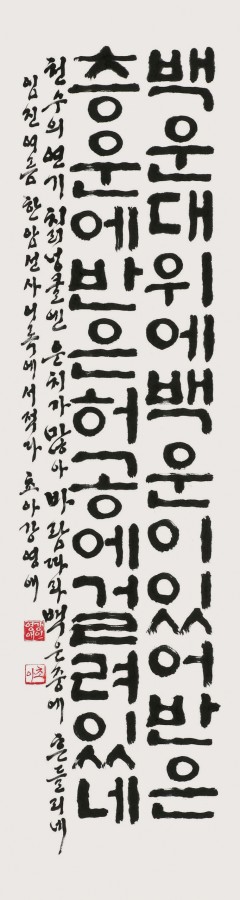 백운대위에백운이있어반은
층운에반은허공에걸려있네
천수의 연기 칡넝쿨엔 운치가 많아 바람따라 백운중에 흔들리네
임진여름 한암선사어록에서적다 초아강영애